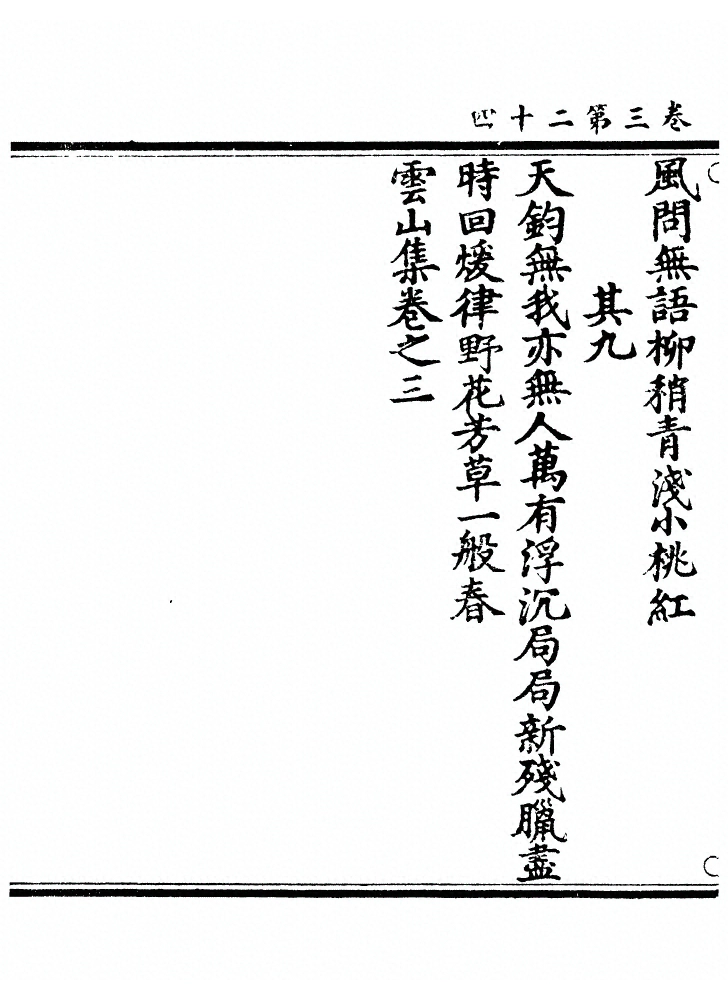 卷三第二十四
風問無語柳稍青淺小桃紅
其九
天鈞無我亦無人萬有浮沉局局新殘臘盡
時回煖律野花芳草一般春
雲山集卷之三